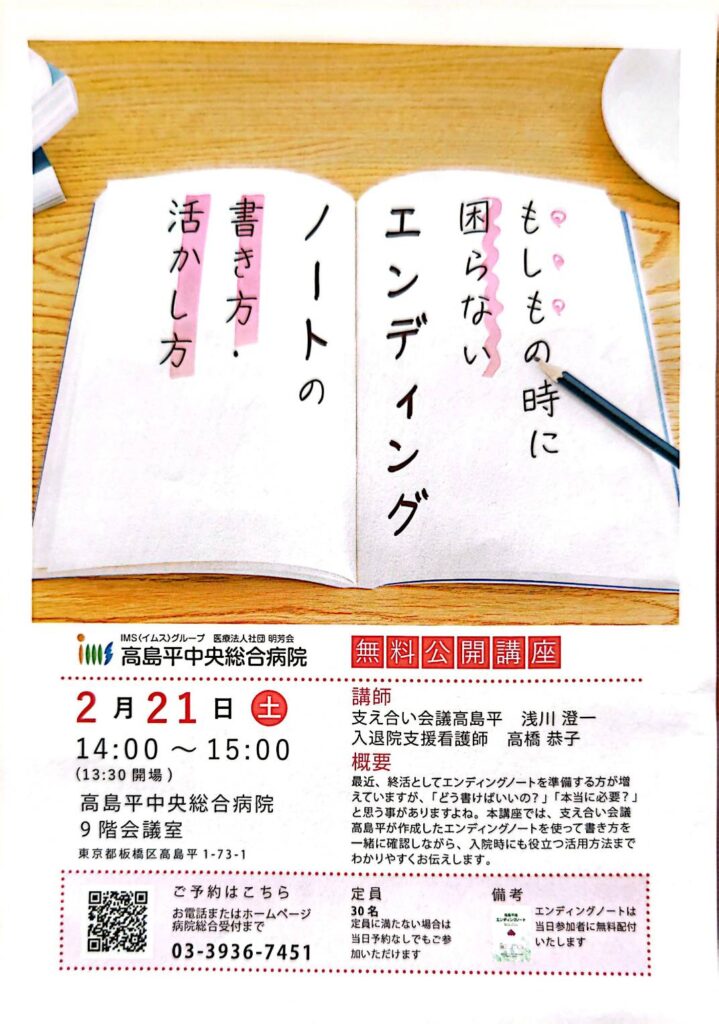 もしもの時に
困らない
エンディング
ノートの
書き方・
活かし方
ims
IMS(イムス)グループ 医療法人社団 明芳会
高島平中央総合病院
無料公開講座
2月21日 土
14:00 〜 15:00
(13:30 開場)
高島平中央総合病院
9階会議室
東京都板橋区高島平 1-73-1
講師
支え合い会議高島平 浅川 澄一
入退院支援看護師 高橋 恭子
概要
最近、終活としてエンディングノートを準備する方が増
えていますが、「どう書けばいいの?」「本当に必要?」
と思う事がありますよね。本講座では、支え合い会議
高島平が作成したエンディングノートを使って書き方を
一緒に確認しながら、入院時にも役立つ活用方法まで
わかりやすくお伝えします。
ご予約はこちら
お電話またはホームページ
病院総合受付まで
03-3936-7451
定員
30名
定員に満たない場合は
当日予約なしでもご参
加いただけます
備考
高島平版
エンディングノート
エンディングノートは
当日参加者に無料配付
いたします